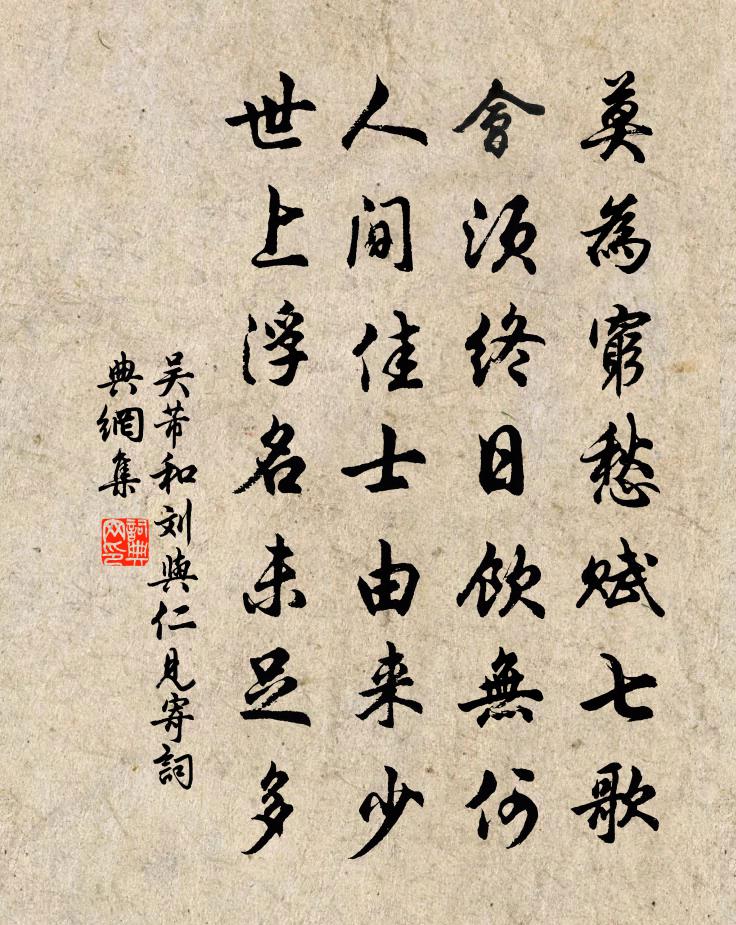 莫為窮愁賦七歌
會須終日飲無何
人間佳士由来少
世上浮名未足多
吴芾和刘與仁見寄詞
典網集
詞典
网印